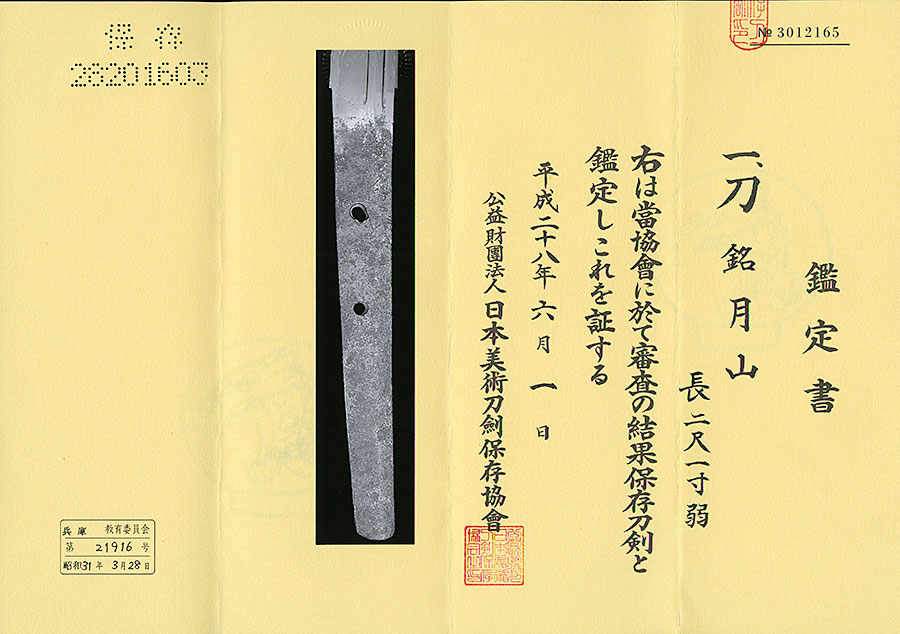 № 3012165
鑑定書
一、刀 銘 月山
長 二尺一寸弱
右は當協會に於て審査の結果保存刀剣と
鑑定しこれを証する
平成二十八年 六月 一日
公益財團法人 日本美術刀劍保存協會
保存
28201603
兵庫 教育委員会
第 21916 号
昭和31年 3月28日